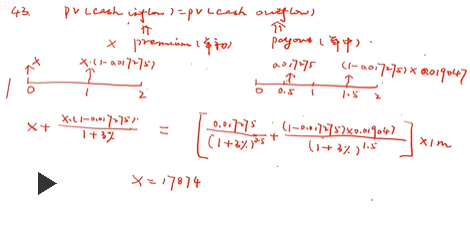 43. PV(cash inflow) = PV(cash outflow)
⇑ ⇑
x premium (年初) payouts (年中)
x x·(1-0.017275) 0.017275 (1-0.017275)×0.019047
0 1 2 0 0.5 1 1.5 2
x + x·(1-0.017275) / 1+3% = [ 0.017275 / (1+3%)^0.5 + (1-0.017275)×0.01904) / (1+3%)^1.5 ] × 1m
x = 17874